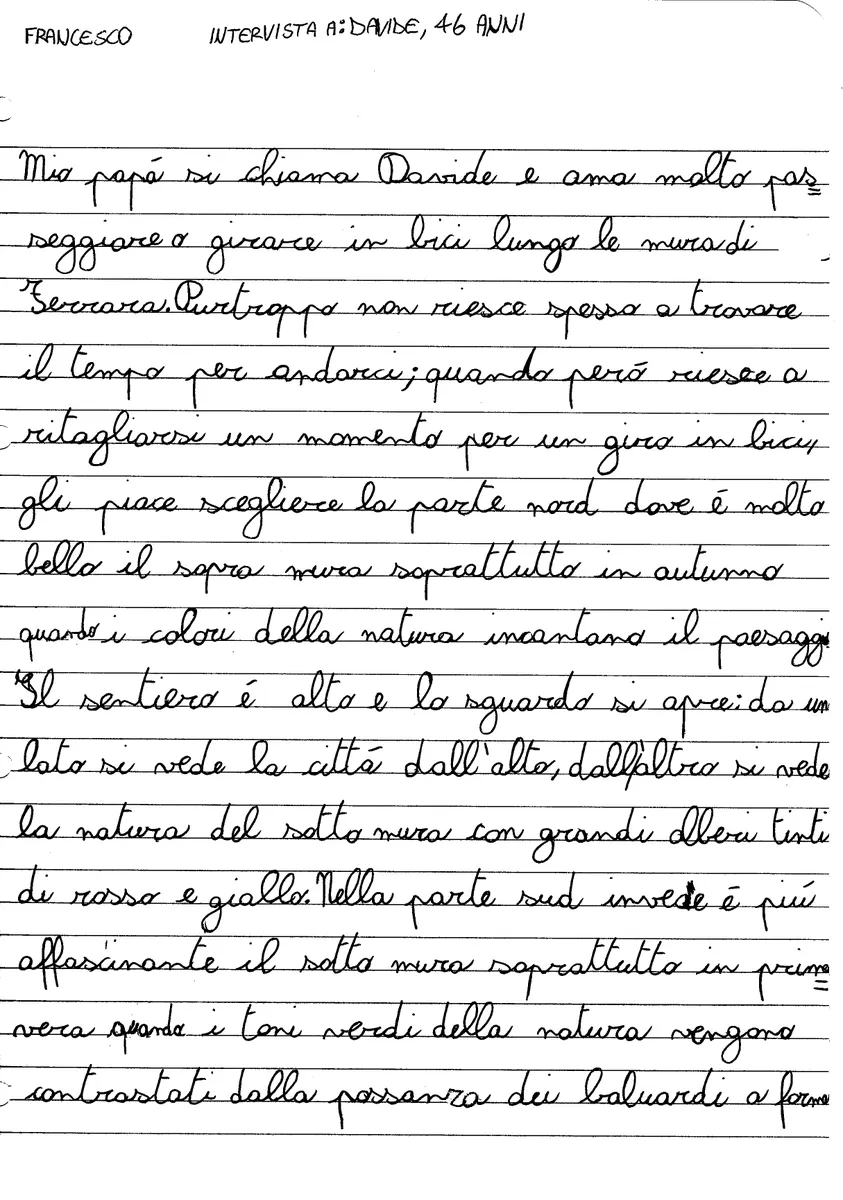 FRANCESCO INTERVISTA A: DAVIDE, 46 ANNI
Mio papá si chiama Davide e ama molto pas=
seggiare o girare in bici lungo le mura di
Ferrara. Purtroppo non riesce spesso a trovare
il tempo per andarci; quando peró riesce a
ritagliarsi un momento per un giro in bici,
gli piace scegliere la parte nord dove é molto
bello il sopra mura soprattutto in autunno
quando i colori della natura incantano il paesaggio
Il sentiero é alto e lo sguardo si apre: da un
lato si vede la cittá dall'alto, dall'altro si vede
la natura del sotto mura con grandi alberi tinti
di rosso e giallo. Nella parte sud invece é piú
affascinante il sotto mura soprattutto in prima=
vera quando i toni verdi della natura vengono
contrastati dalla possanza dei baluardi a forma